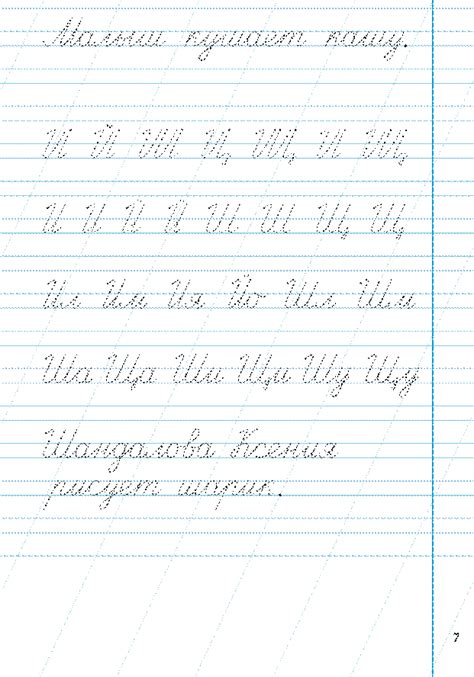 Малыш кушает кашу.
И Й Ш Ц Щ И Щ
И И Й Й Ш Ш Щ Щ
Ил Им Ия Йо Шл Шм
Ша Ща Ши Щи Шу Щу
Шандалова Ксения
рисует шарик.
7